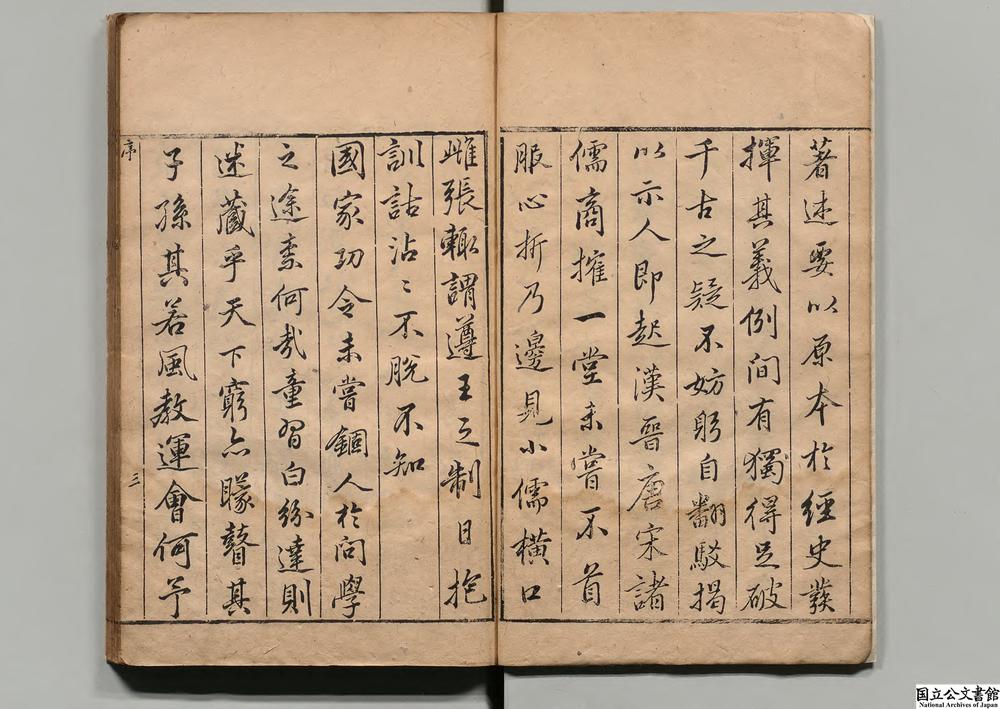 著述要以原本於經史發
揮其義例間有獨得足破
千古之疑不妨躬自翻駁揭
以示人即起漢晉唐宋諸
儒商搉一堂未嘗不首
服心折乃邊見小儒橫口
雌張輙謂遵王之制日抱
訓詁沾〻不脫不知
國家功令未嘗錮人於問學
之途柰何哉童習白紛達則
迷蔵乎天下窮亦矇瞽其
子孫其若風教運會何予
序 三
国立公文書館
National Archives of Japan